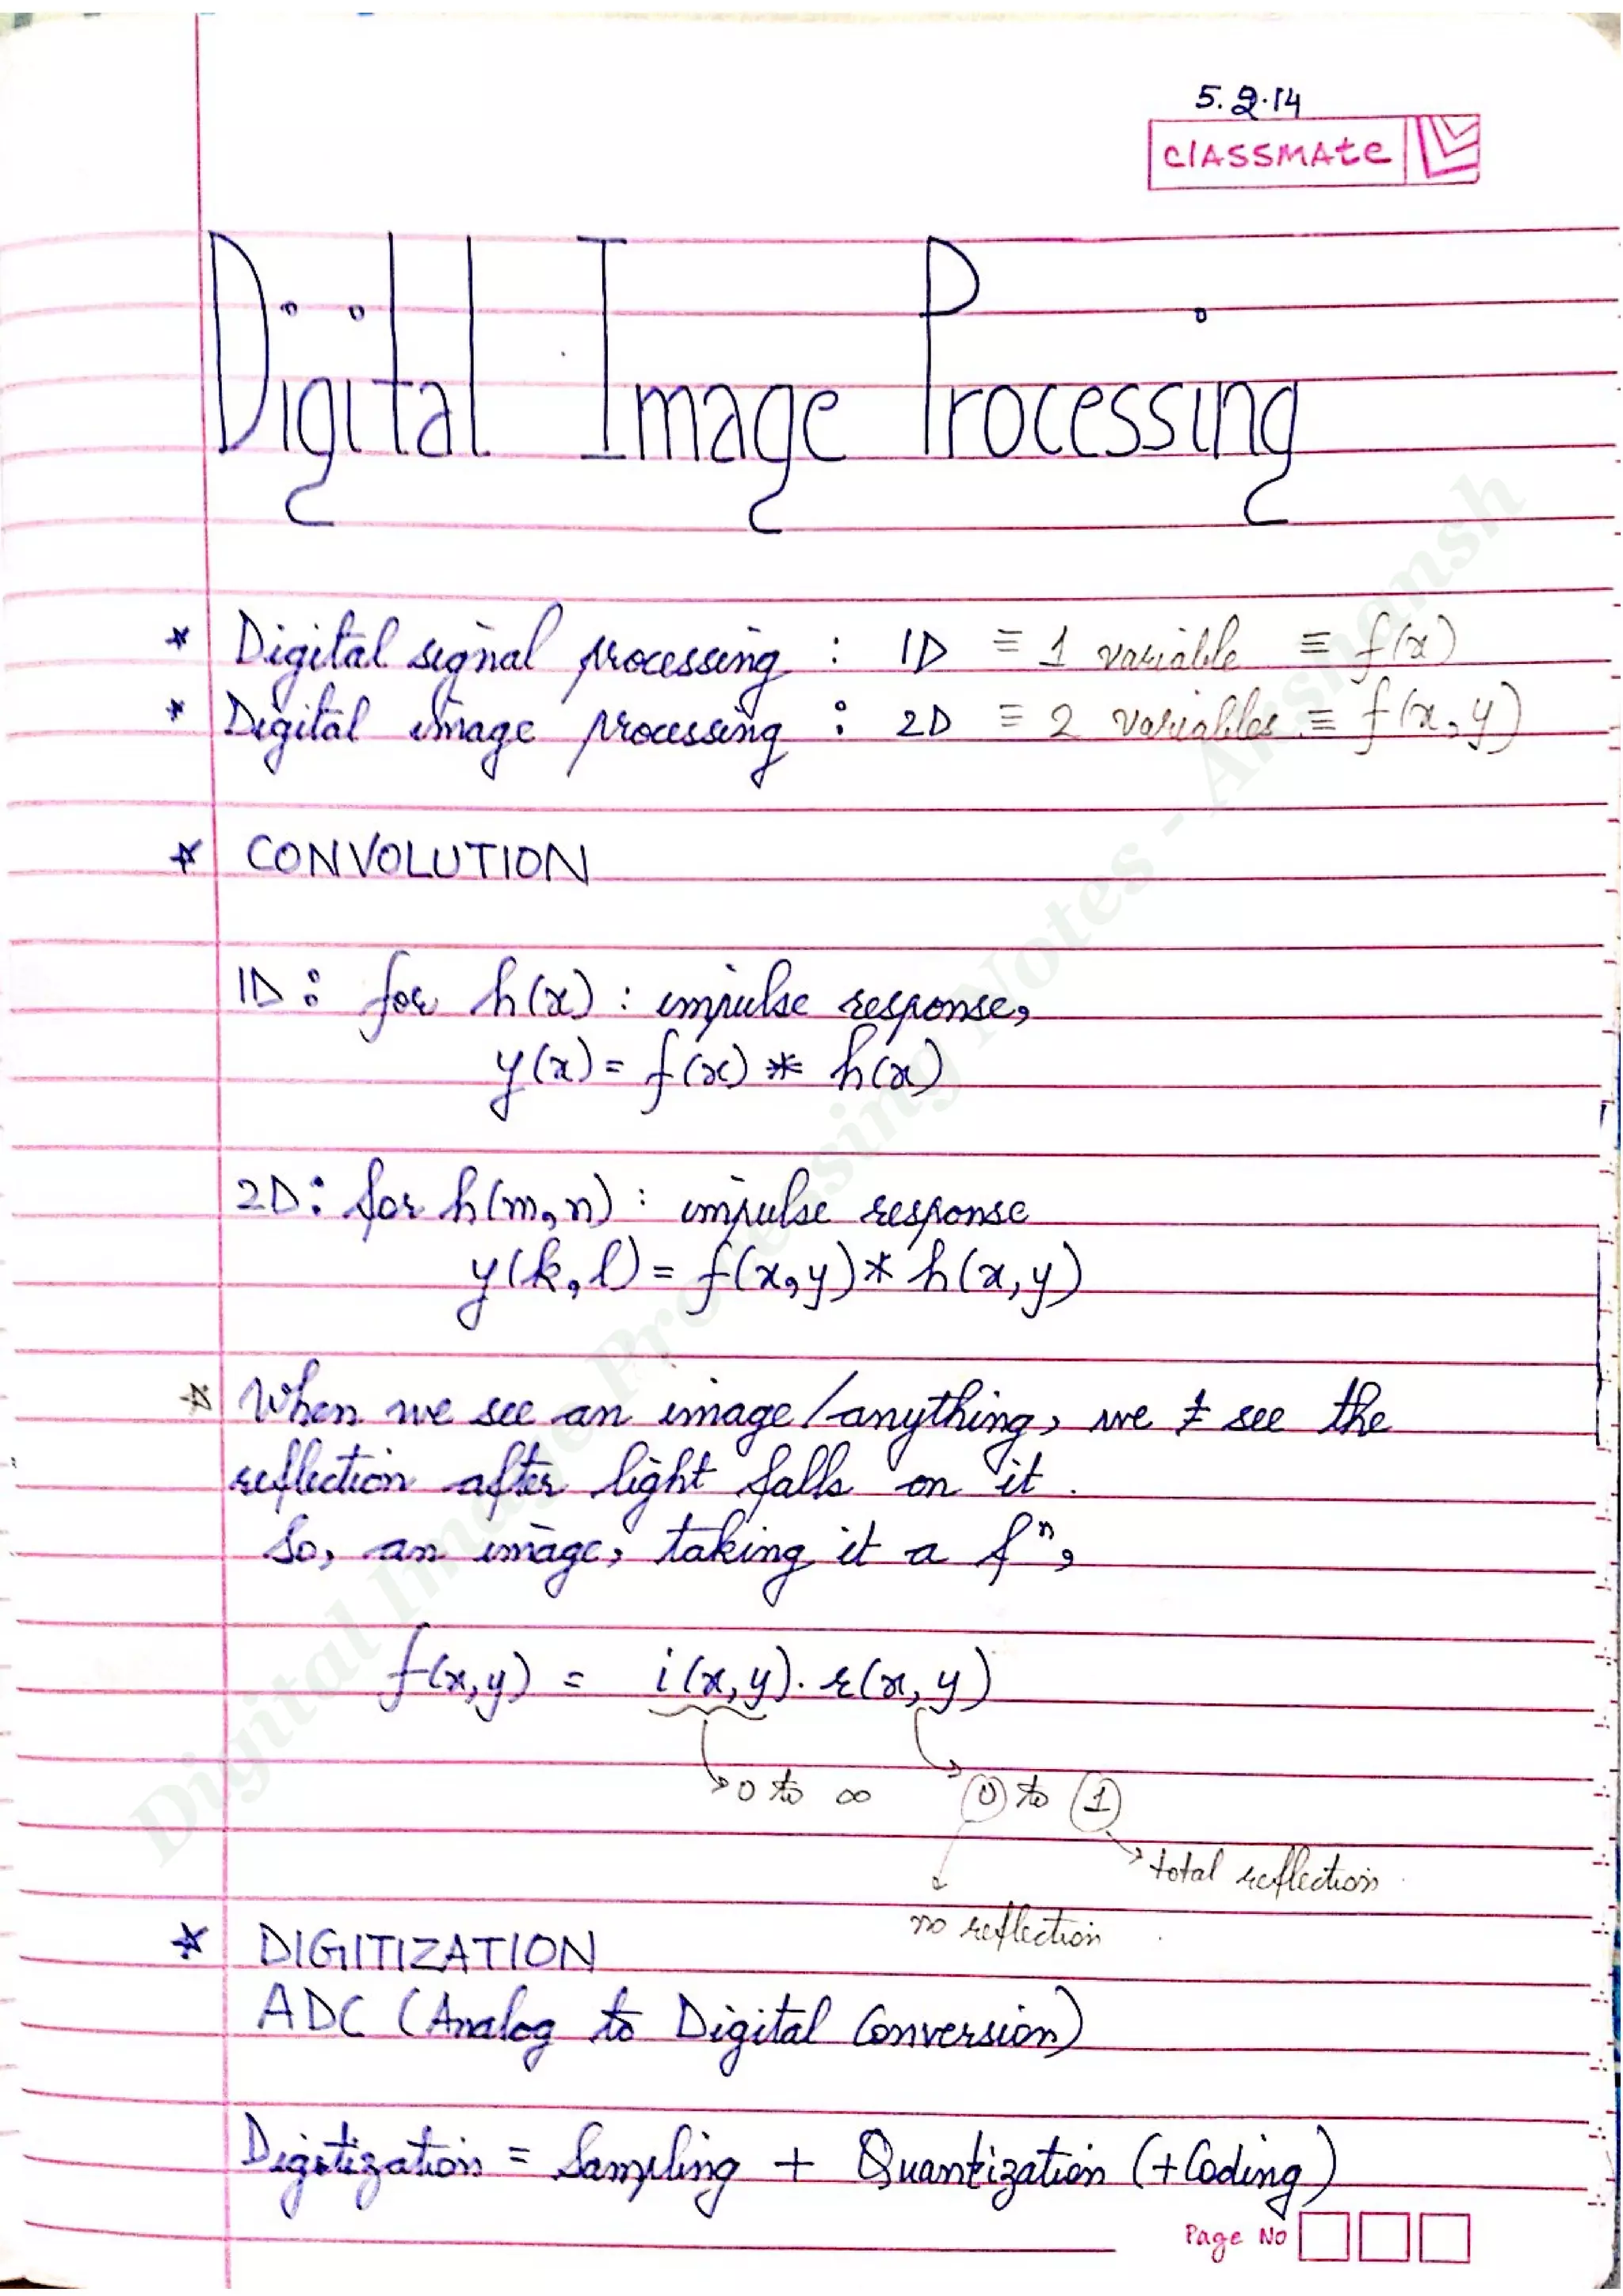 5.2.14
classmate
Digital Image Processing
* Digital signal processing : 1D ≡ 1 variable ≡ f(x)
* Digital image processing : 2D ≡ 2 variables ≡ f(x,y)
* CONVOLUTION
1D: for h(x) : impulse response,
y(x) = f(x) * h(x)
2D: for h(m,n) : impulse response
y(k,l) = f(x,y) * h(x,y)
* When we see an image/anything, we see the
reflection after light falls on it.
So, an image, taking it a fⁿ,
f(x,y) = i(x,y). r(x,y)
0 to ∞ 0 to 1
total reflection
no reflection
* DIGITIZATION
ADC (Analog to Digital Conversion)
Digitization = Sampling + Quantization (+Coding)
Page No
Digital Image Processing Notes - Akshansh